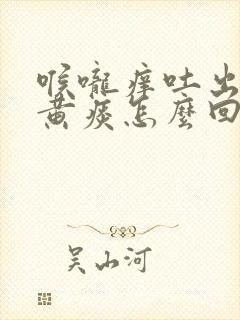 喉嚨癢吐出
黄痰怎麼回
吴山河